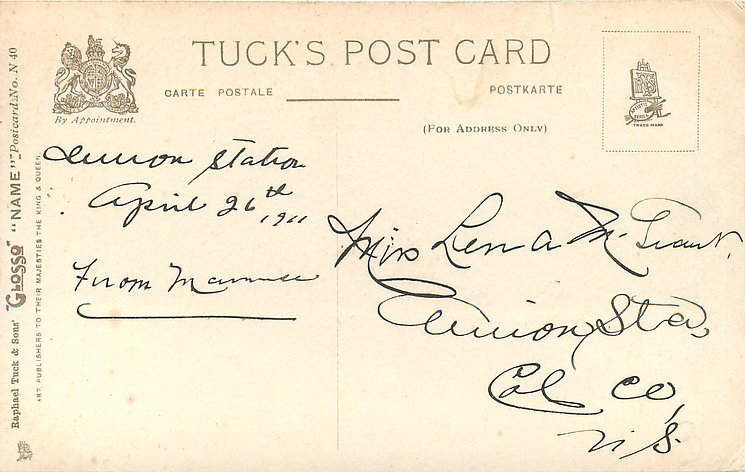 TUCK'S POST CARD
CARTE POSTALE
POSTKARTE
(FOR ADDRESS ONLY)
By Appointment.
TRADE MARK
Union Station
April 26th 1911
From Mamma
Miss Lena M.
Union Sta,
Col Co,
N.S.
Raphael Tuck & Sons' "GLOSSO" "NAME" Postcard No. N 40
ART PUBLISHERS TO THEIR MAJESTIES THE KING & QUEEN